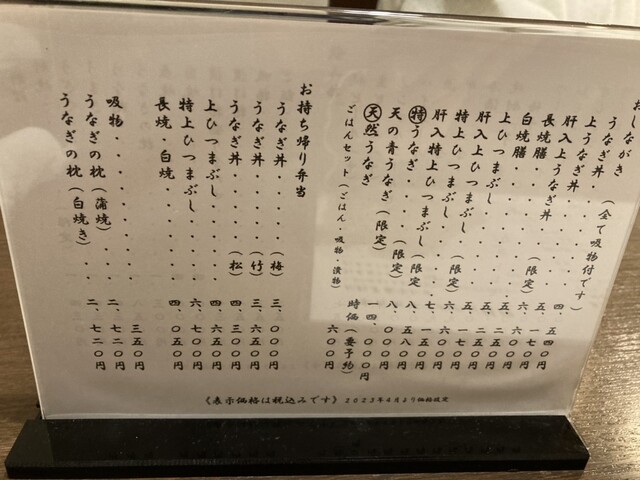 おしながき (全て吸物付です)
うなぎ丼
上うなぎ丼
肝入上うなぎ丼 (限定)
長焼膳
白焼膳
上ひつまぶし
肝入上ひつまぶし (限定)
特上ひつまぶし
肝入特上ひつまぶし (限定)
特うなぎ (限定)
天の青うなぎ (限定) 一四、〇〇〇円
天然うなぎ 時価(要予約)
ごはんセット(ごはん・吸物・漬物) 六〇〇円
お持ち帰り弁当
うなぎ丼・・・(梅) 三、〇〇〇円
うなぎ丼・・・(竹) 三、六五〇円
うなぎ丼・・・(松) 四、三〇〇円
上ひつまぶし・・・ 四、六五〇円
特上ひつまぶし・・・ 六、七〇〇円
長焼・白焼・・・ 四、〇五〇円
吸物・・・・・・・ 三五〇円
うなぎの枕(蒲焼)・・ 二、七二〇円
うなぎの枕(白焼き)・・ 二、七二〇円
《表示価格は税込みです》 2023年4月より価格改定